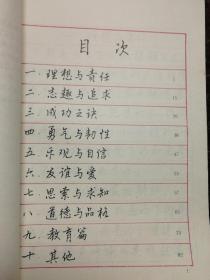 目次
一．理想与责任 1
二．志趣与追求 15
三．成功之诀
四．勇气与韧性
五．乐观与自信 47
六．友谊与爱
七．思索与求知
八．道德与品格
九．教育篇 73
十．其他 82